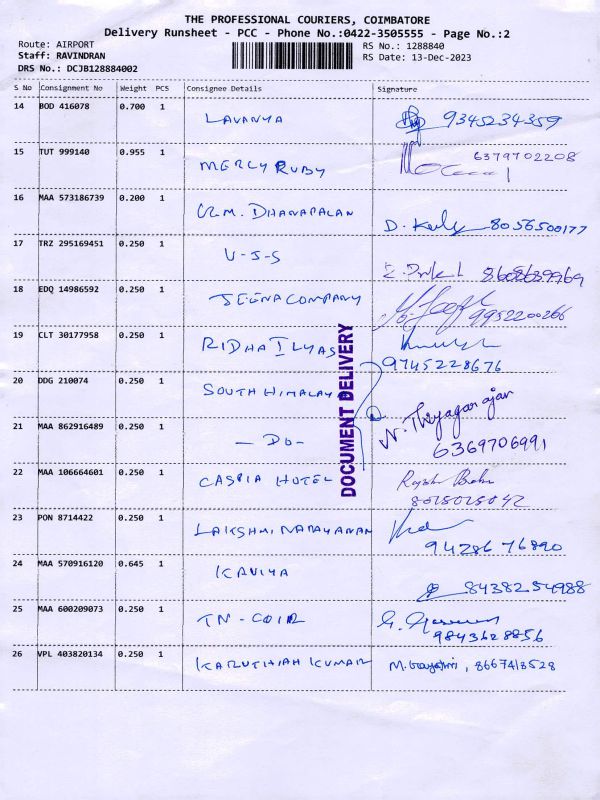 THE PROFESSIONAL COURIERS, COIMBATORE
Delivery Runsheet - PCC - Phone No.:0422-3505555 - Page No.:2
Route: AIRPORT RS No.: 1288840
Staff: RAVINDRAN RS Date: 13-Dec-2023
DRS No.: DCJB128884002
S No Consignment No Weight PCS Consignee Details Signature
14 BOD 416078 0.700 1 LAVANYA 9345234359
15 TUT 999140 0.955 1 MERCY RUBY 6379702208
16 MAA 573186739 0.200 1 DHANAPALAN 8056500177
17 TRZ 295169451 0.250 1 U-S-S 8608639969
18 EDQ 14986592 0.250 1 JEENA COMPANY 9952200266
19 CLT 30177958 0.250 1 RIDHA ILYAS 9745228676
20 DDG 210074 0.250 1 SOUTH HIMALAYA
21 MAA 862916489 0.250 1 - DO - N. Thyagarajan 6369706991
22 MAA 106664601 0.250 1 CASPIA HOTEL 8025025042
23 PON 8714422 0.250 1 LAKSHMI NARAYANAN 9428676890
24 MAA 570916120 0.645 1 KAVIYA 8438254988
25 MAA 600209073 0.250 1 TN-COIR 9843628856
26 VPL 403820134 0.250 1 KARUTHIAH KUMAR M. Gayathri, 8667418528
DOCUMENT DELIVERY